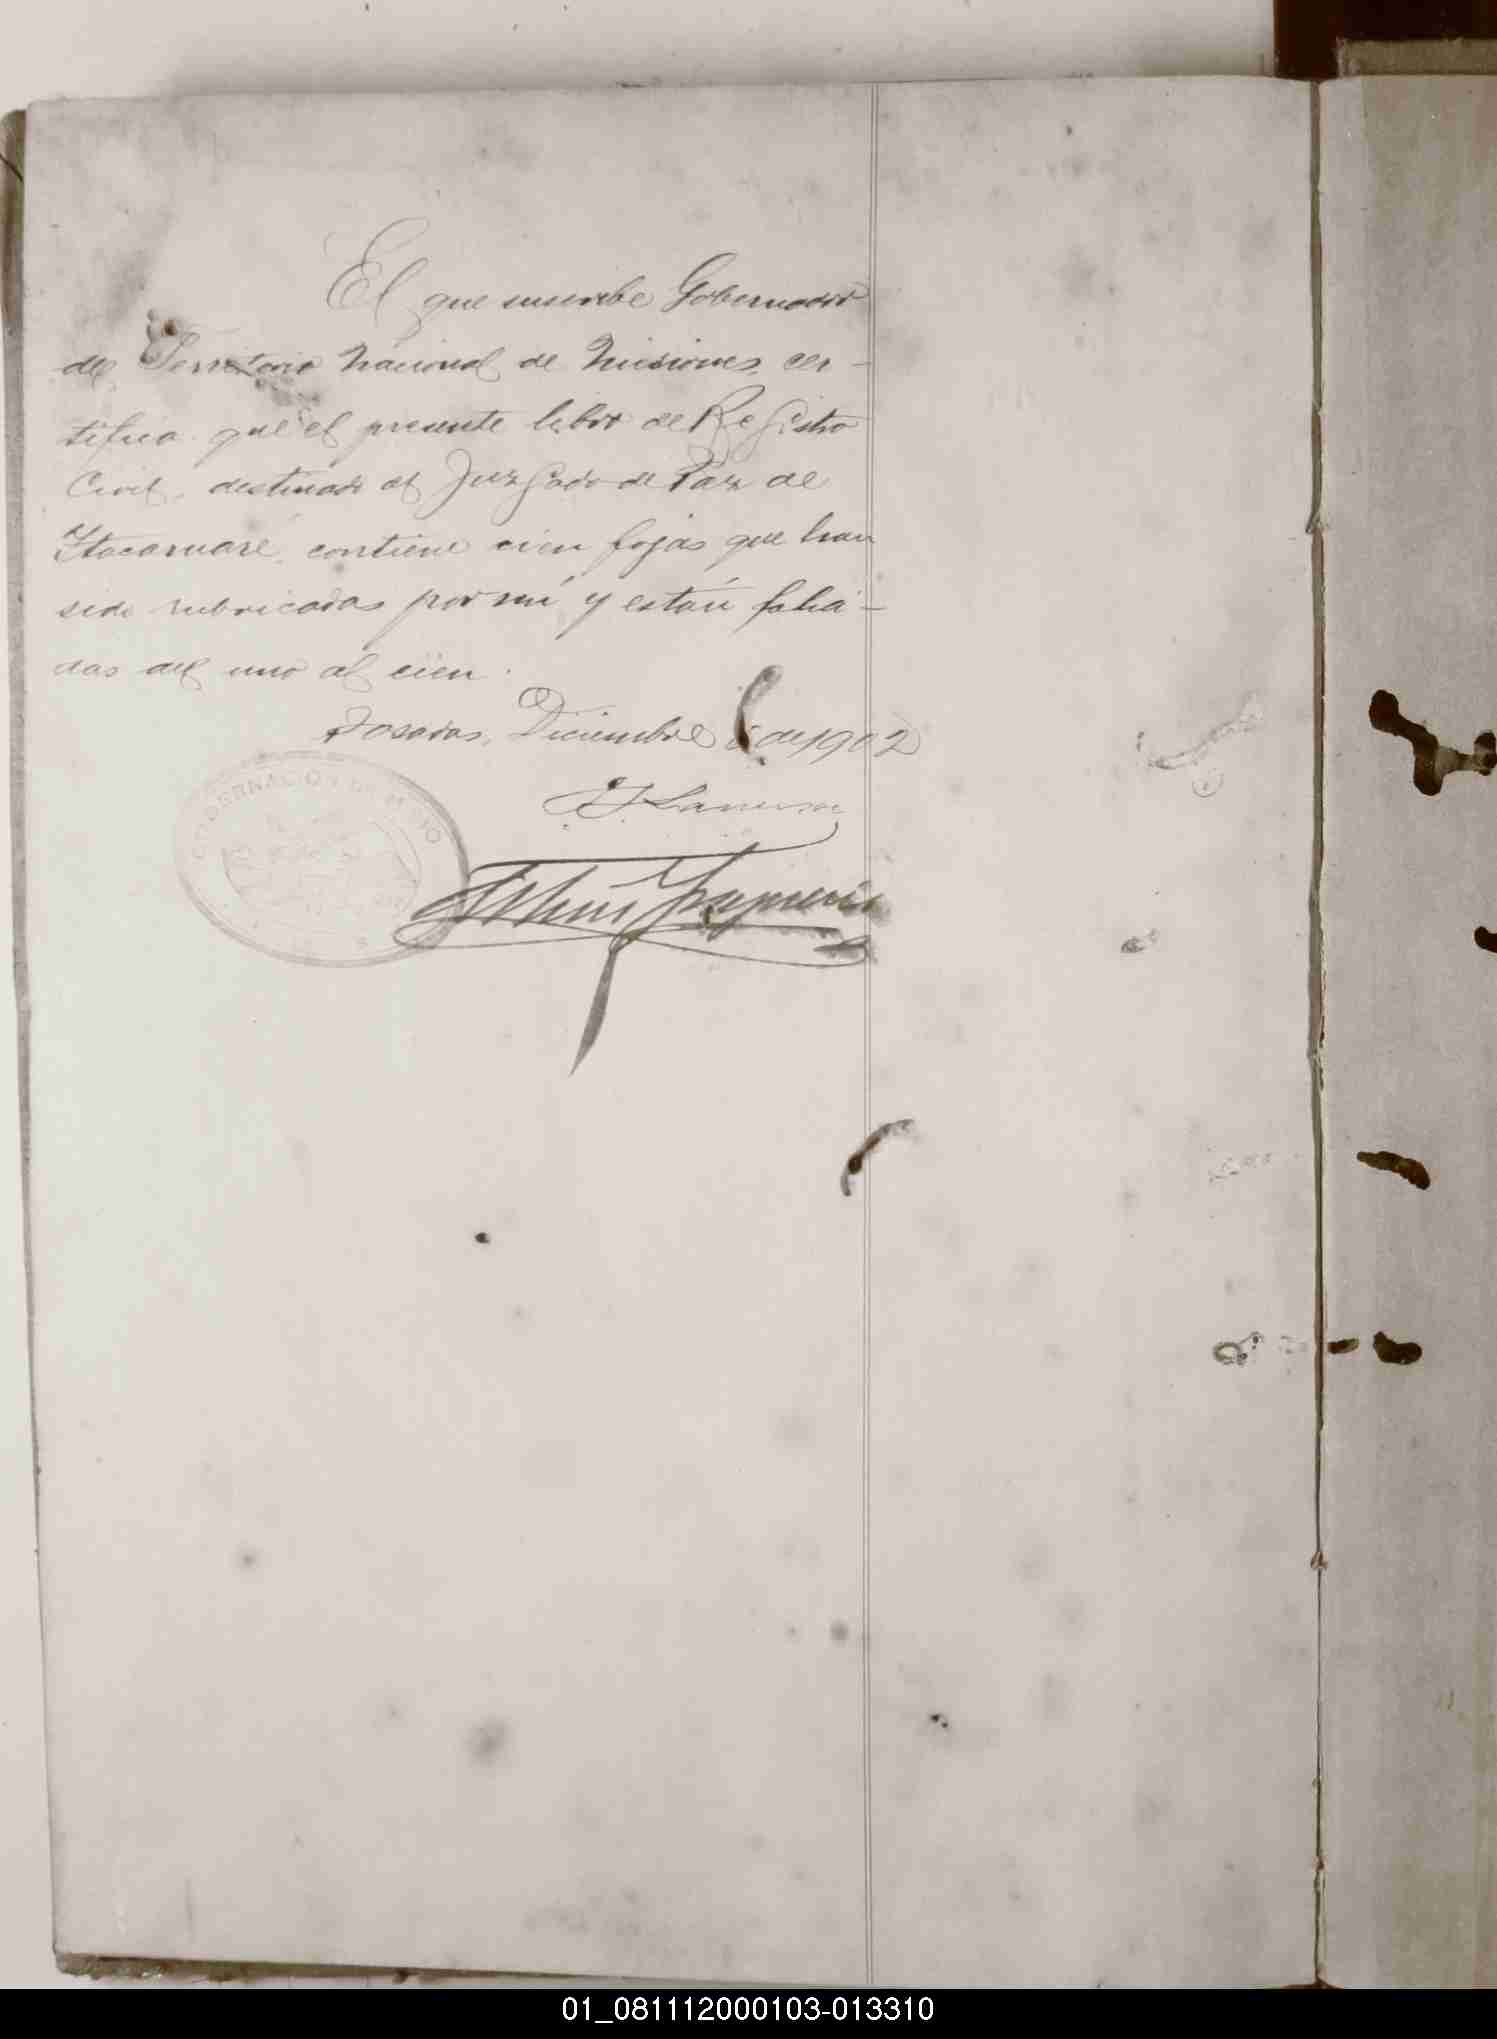 El que suscribe Gobernador
del Territorio Nacional de Misiones, cer-
tifica que el presente libro de Registro
Civil, destinado al Juzgado de Paz de
Itacaruaré, contiene cien fojas que han
sido rubricadas por mí y están folia-
das del uno al cien.
Posadas, Diciembre de 1902
J. J. Lanusse
GOBERNACION DE MISIO
01_081112000103-013310